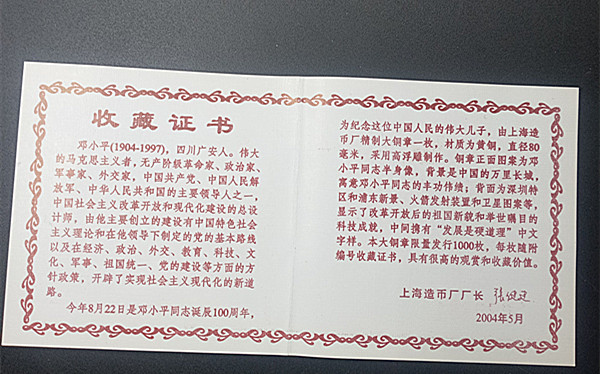 收藏证书
邓小平(1904-1997)，四川广安人。伟大
的马克思主义者，无产阶级革命家、政治家、
军事家、外交家，中国共产党、中国人民解
放军、中华人民共和国的主要领导人之一，
中国社会主义改革开放和现代化建设的总设
计师，由他主要创立的建设有中国特色社会
主义理论和在他领导下制定的党的基本路线
以及在经济、政治、外交、教育、科技、文
化、军事、祖国统一、党的建设等方面的方
针政策，开辟了实现社会主义现代化的新道
路。
今年8月22日是邓小平同志诞辰100周年，
为纪念这位中国人民的伟大儿子，由上海造
币厂精制大铜章一枚，材质为黄铜，直径80
毫米，采用高浮雕制作。铜章正面图案为邓
小平同志半身像，背景是中国的万里长城，
寓意邓小平同志的丰功伟绩；背面为深圳特
区和浦东新景、火箭发射装置和卫星图案等，
显示了改革开放后的祖国新貌和举世瞩目的
科技成就，中间携有“发展是硬道理”中文
字样。本大铜章限量发行1000枚，每枚随附
编号收藏证书，具有很高的观赏和收藏价值。
上海造币厂厂长
2004年5月